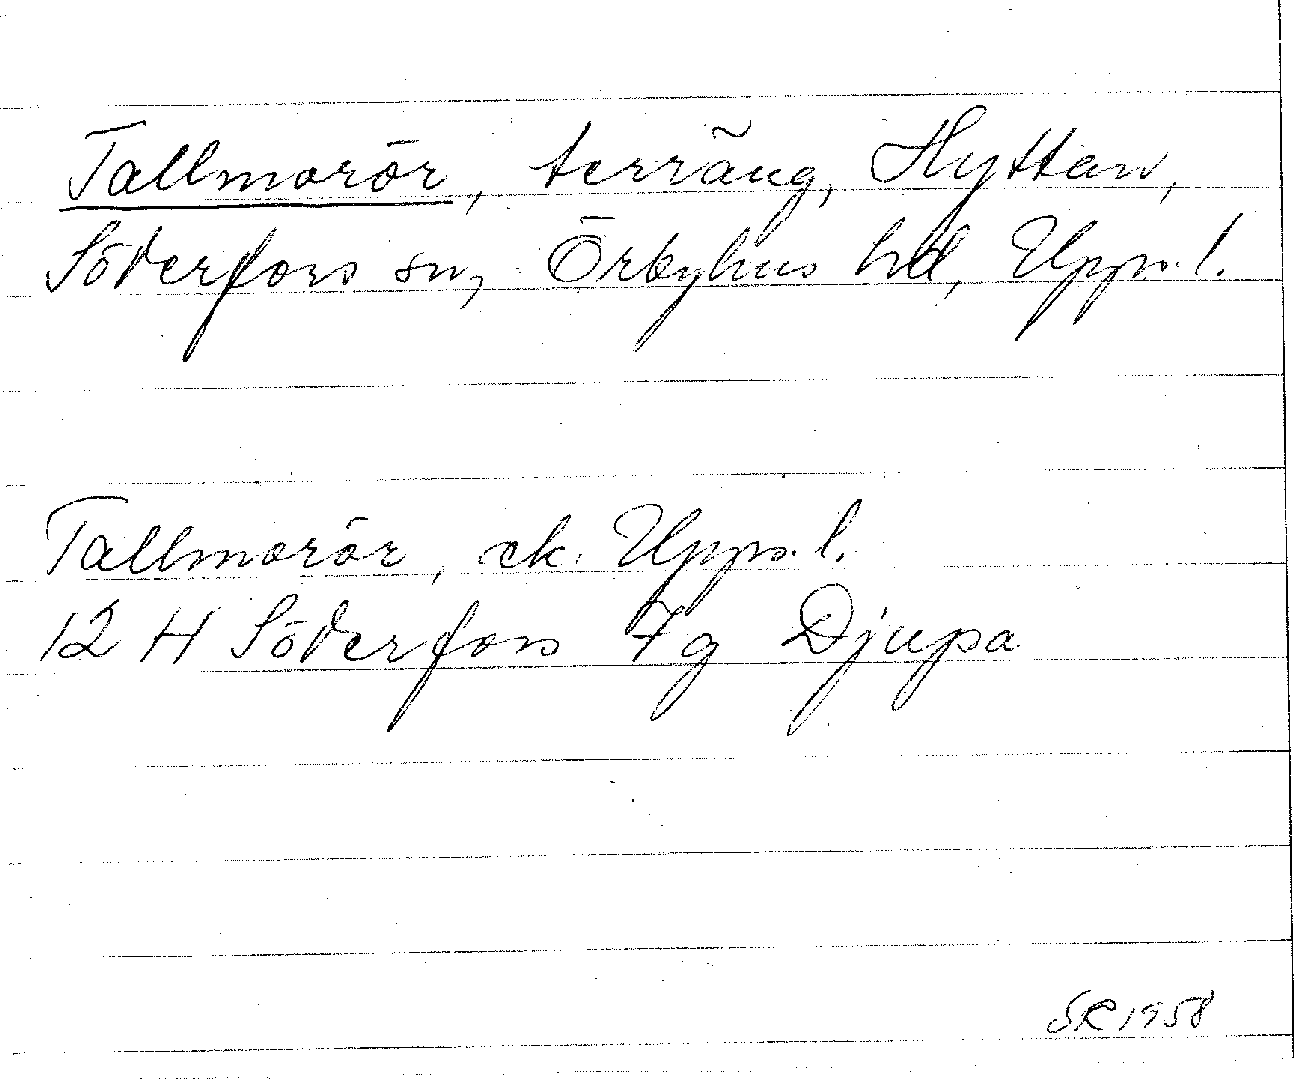 Tallmorör, terräng, Hyttan,
Söderfors sn, Örbyhus hd, Upps. l.
Tallmorör, ek. Upps. l.
12 H Söderfors 7g Djupa
SR 1958